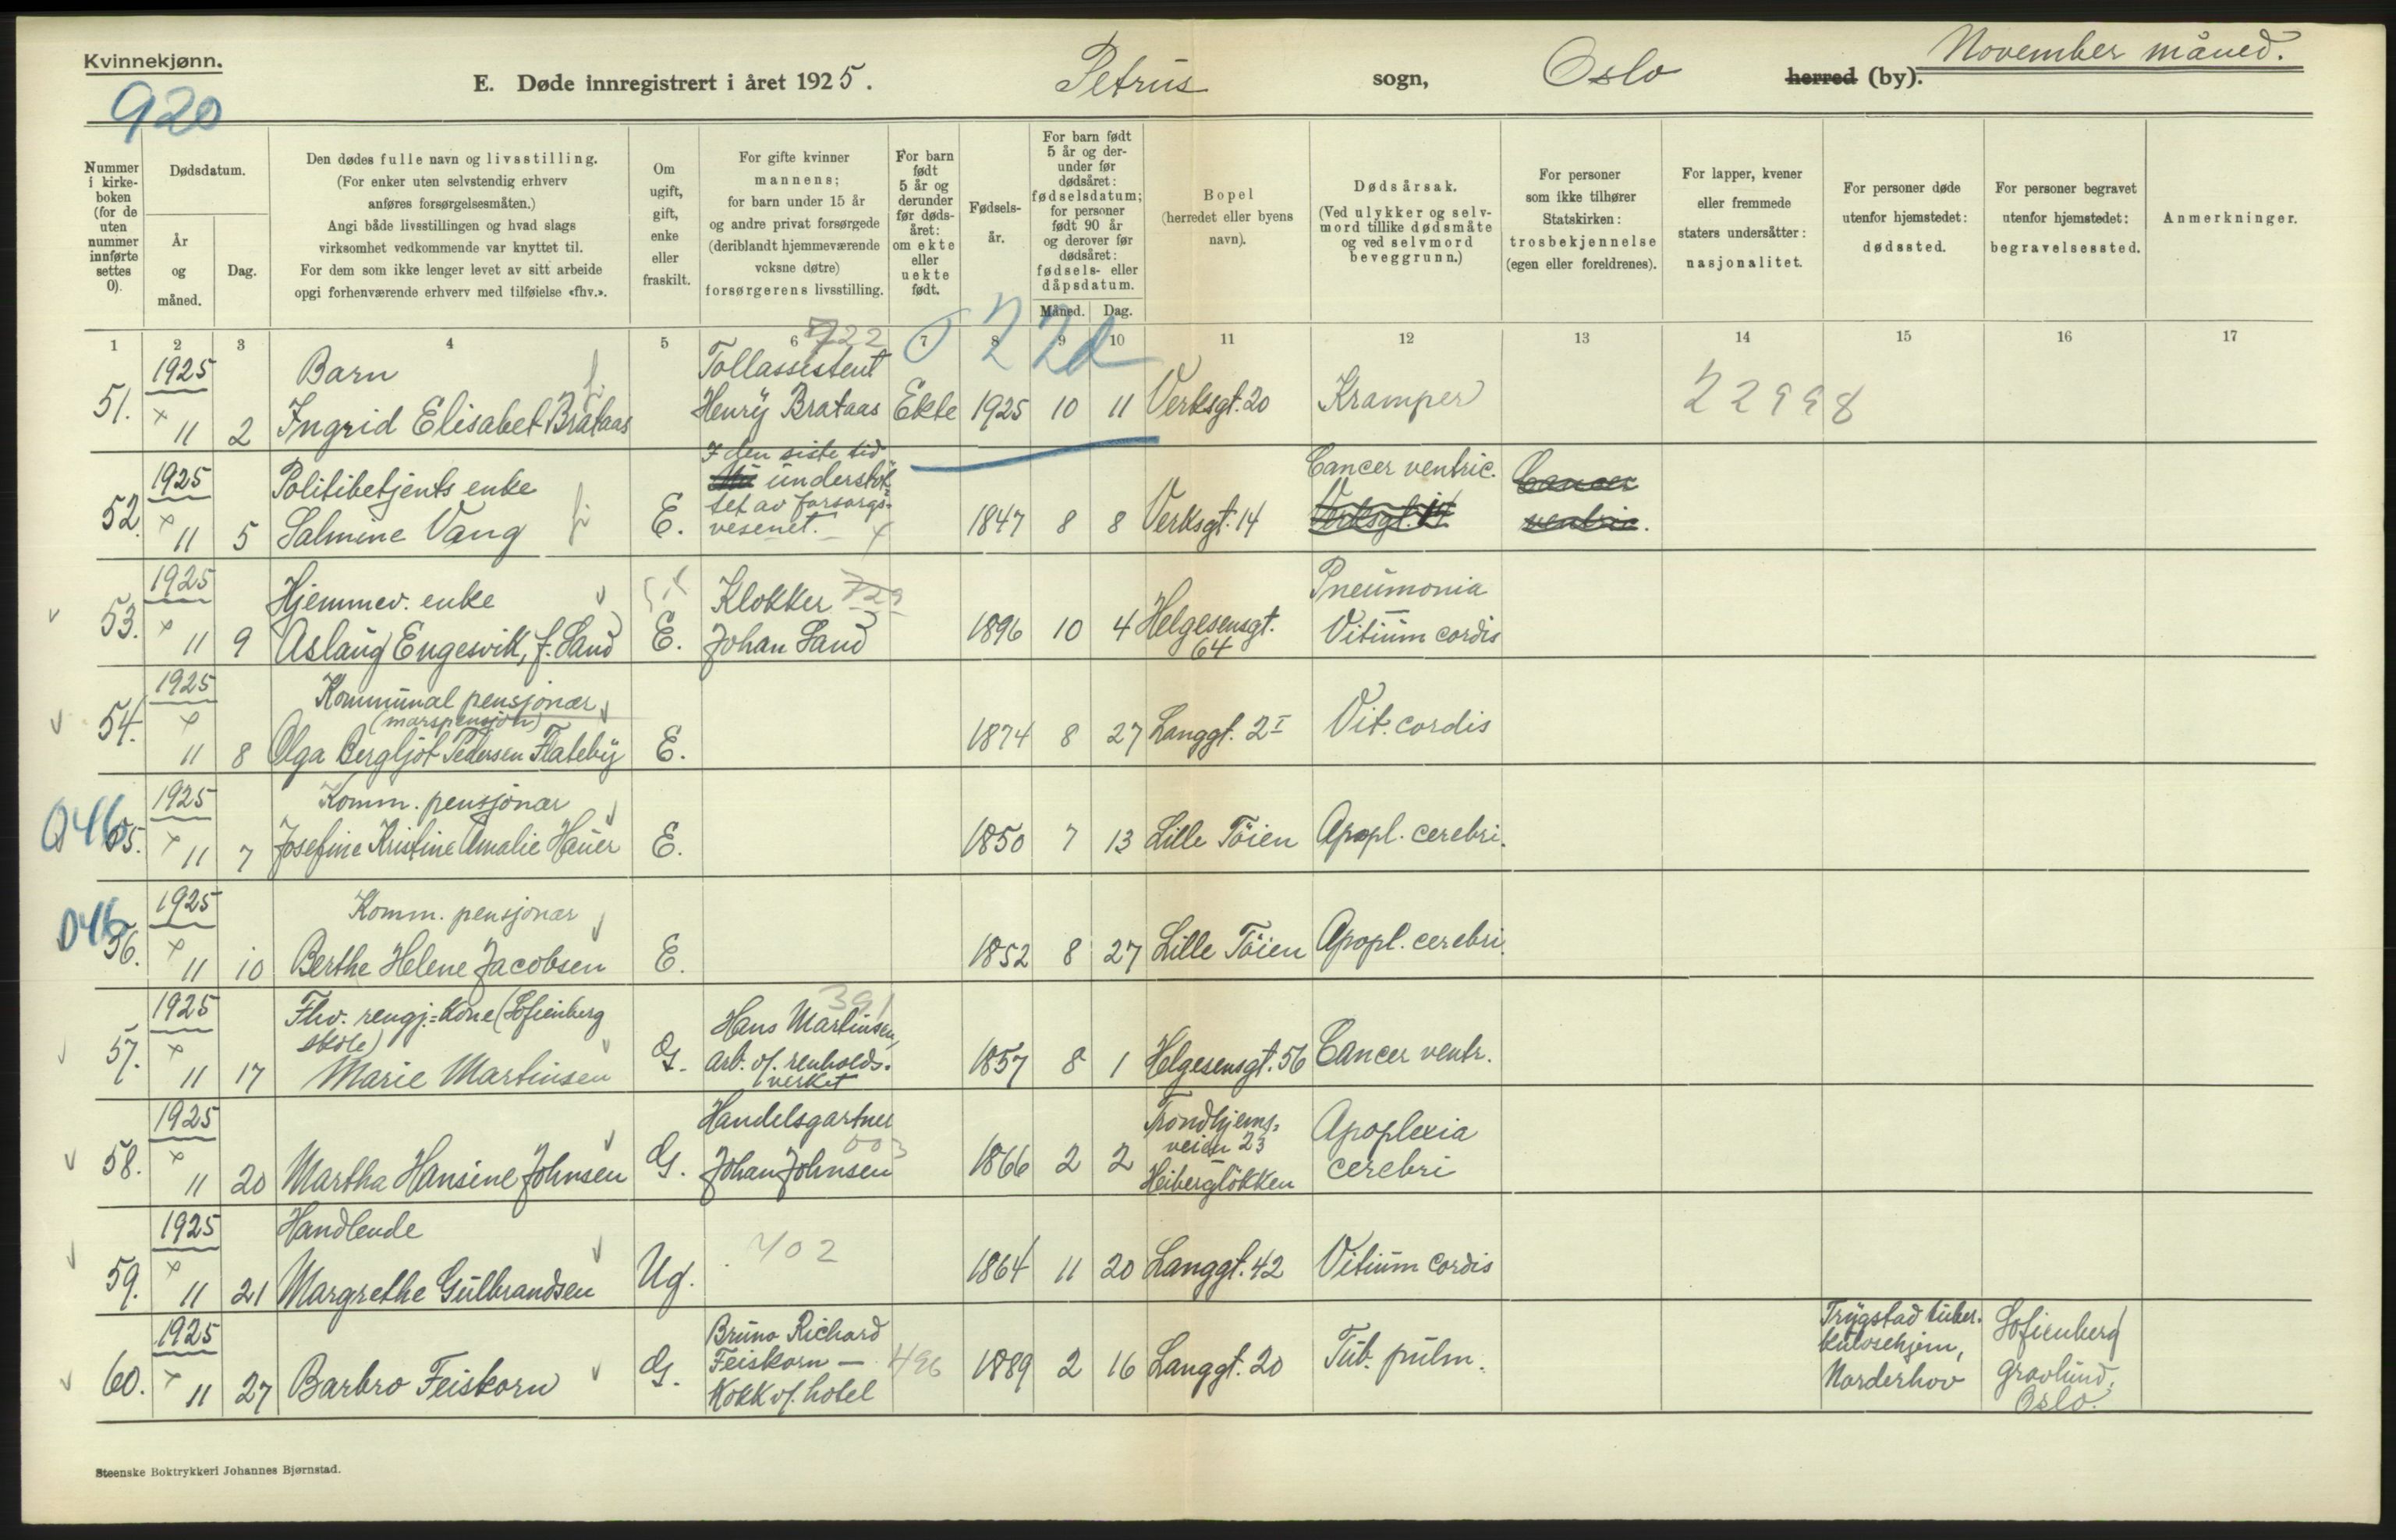 Kvinnekjønn.
920
E. Døde innregistrert i året 1925.
Petrus sogn,
Oslo herred (by).
November måned.
Nummer i kirke-boken (for de uten nummer innførte settes 0).
Dødsdatum.
År og måned.
Dag.
Den dødes fulle navn og livsstilling.
(For enker uten selvstendig erhverv
anføres forsørgelsesmåten.)
Angi både livsstillingen og hvad slags
virksomhet vedkommende var knyttet til.
For dem som ikke lenger levet av sitt arbeide
opgi forhenværende erhverv med tilføielse «fhv.».
Om ugift, gift, enke eller fraskilt.
For gifte kvinner
mannens;
for barn under 15 år
og andre privat forsørgede
(deriblandt hjemmeværende
voksne døtre)
forsørgerens livsstilling.
For barn født 5 år og derunder før døds-året: om ekte eller uekte født.
Fødsels-år.
For barn født 5 år og der-under før dødsåret: fødselsdatum; for personer født 90 år og derover før dødsåret: fødsels- eller dåpsdatum.
Måned. Dag.
Bopel
(herredet eller byens
navn).
Dødsårsak.
(Ved ulykker og selv-
mord tillike dødsmåte
og ved selvmord
beveggrunn.)
For personer
som ikke tilhører
Statskirken:
trosbekjennelse
(egen eller foreldrenes).
For lapper, kvener
eller fremmede
staters undersåtter:
nasjonalitet.
For personer døde
utenfor hjemstedet:
dødssted.
For personer begravet
utenfor hjemstedet:
begravelsessted.
Anmerkninger.
1 2 3 4 5 6 7 8 9 10 11 12 13 14 15 16 17
722
51. 1925 11 2 Barn
Ingrid Elisabet Brataas
Tollassistent
Henry Brataas
Ekte 1925 10 11 Verksgt. 20 Kramper 22998
52. 1925 11 5 Politibetjents enke
Salmine Vang E.
I den siste tid
understøt-
tet av forsorgs-
vesenet.
1847 8 8 Verksgt. 14 Cancer ventric.
Verksgt. 14
Cancer
ventric.
53. 1925 11 9 Hjemmev. enke
Aslaug Engesvik, f. Sand E.
Klokker 729
Johan Sand
1896 10 4 Helgesensgt.
64
Pneumonia
Vitium cordis
54. 1925 11 8 Kommunal pensjonær
Olga Bergljot Pedersen Flateby E.
1874 8 27 Langgt. 2 I Vit. cordis
046
55. 1925 11 7 Komm. pensjonær
Josefine Kristine Amalie Hauer E.
1850 7 13 Lille Töien Apopl. cerebri.
046
56. 1925 11 10 Komm. pensjonær
Berthe Helene Jacobsen E.
1852 8 27 Lille Töien Apopl. cerebri.
57. 1925 11 17 Fhv. rengj.-kone (Sofienberg
skole)
Marie Martinsen G.
391
Hans Martinsen,
arb. v/ renholds-
verket
1857 8 1 Helgesensgt. 56 Cancer ventr.
58. 1925 11 20 Martha Hansine Johnsen G.
Handelsgartner
Johan Johnsen
1866 2 2 Trondhjems-
veien 23
Heiberglökken
Apoplexia
cerebri
59. 1925 11 21 Handlende
Margrethe Gulbrandsen Ug.
402
1864 11 20 Langgt. 42 Vitium cordis
60. 1925 11 27 Barbro Feiskorn G.
Bruno Richard
Feiskorn – 496
Kokk v/ hotel
1889 2 16 Langgt. 20 Tub. pulm.
Trygstad tuber-
kulosehjem,
Norderhov
Sofienberg
gravlund,
Oslo.
Steenske Boktrykkeri Johannes Bjørnstad.